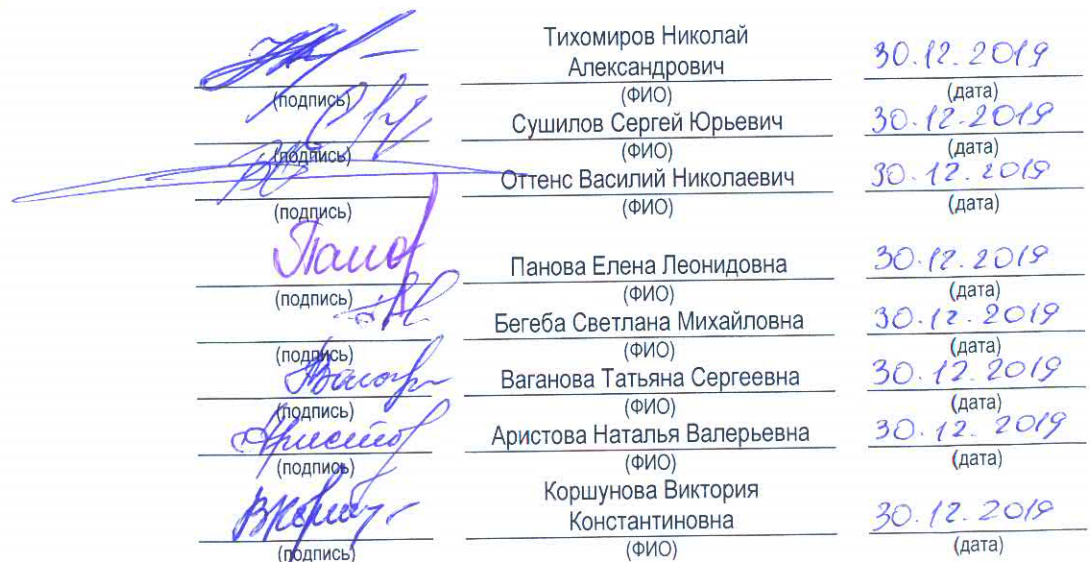 Тихомиров Николай
Александрович
30.12.2019
(подпись) (ФИО) (дата)
Сушилов Сергей Юрьевич 30.12.2019
(подпись) (ФИО) (дата)
Оттенс Василий Николаевич 30.12.2019
(подпись) (ФИО) (дата)
Панова Елена Леонидовна 30.12.2019
(подпись) (ФИО) (дата)
Бегеба Светлана Михайловна 30.12.2019
(подпись) (ФИО) (дата)
Ваганова Татьяна Сергеевна 30.12.2019
(подпись) (ФИО) (дата)
Аристова Наталья Валерьевна 30.12.2019
(подпись) (ФИО) (дата)
Коршунова Виктория
Константиновна 30.12.2019
(подпись) (ФИО) (дата)